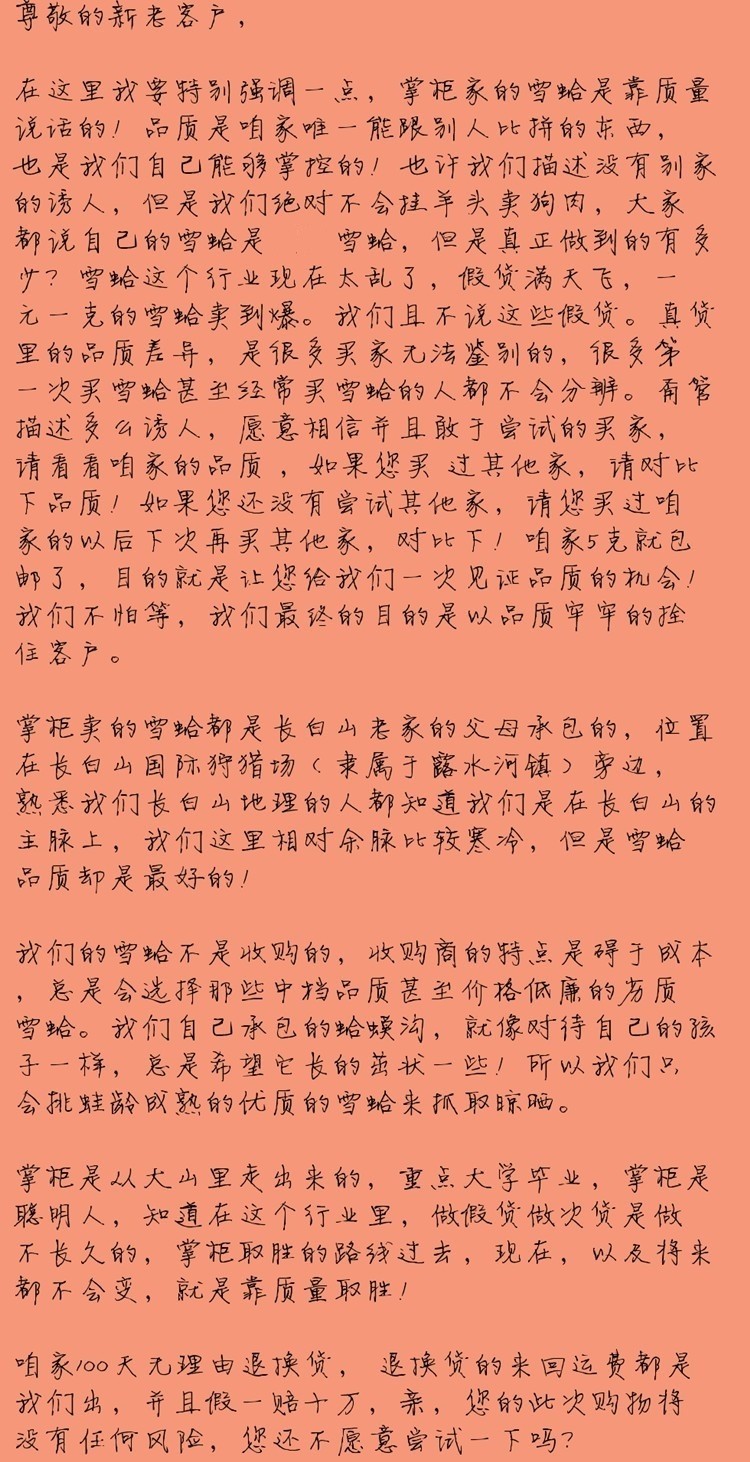 尊敬的新老客户，
在这里我要特别强调一点，掌柜家的雪蛤是靠质量
说话的！品质是咱家唯一能跟别人比拼的东西，
也是我们自己能够掌控的！也许我们描述没有别家
的诱人，但是我们绝对不会挂羊头卖狗肉，大家
都说自己的雪蛤是 雪蛤，但是真正做到的有多
少？雪蛤这个行业现在太乱了，假货满天飞，一
元一克的雪蛤卖到爆。我们且不说这些假货。真货
里的品质差异，是很多买家无法鉴别的，很多第
一次买雪蛤甚至经常买雪蛤的人都不会分辨。甭管
描述多么诱人，愿意相信并且敢于尝试的买家，
请看看咱家的品质，如果您买 过其他家，请对比
下品质！如果您还没有尝试其他家，请您买过咱
家的以后下次再买其他家，对比下！咱家5克就包
邮了，目的就是让您给我们一次见证品质的机会！
我们不怕等，我们最终的目的是以品质牢牢的拴
住客户。
掌柜卖的雪蛤都是长白山老家的父母承包的，位置
在长白山国际狩猎场（隶属于露水河镇）旁边，
熟悉我们长白山地理的人都知道我们是在长白山的
主脉上，我们这里相对余脉比较寒冷，但是雪蛤
品质却是最好的！
我们的雪蛤不是收购的，收购商的特点是碍于成本
，总是会选择那些中档品质甚至价格低廉的劣质
雪蛤。我们自己承包的蛤蟆沟，就像对待自己的孩
子一样，总是希望它长的茁状一些！所以我们只
会挑蛙龄成熟的优质的雪蛤来抓取晾晒。
掌柜是从大山里走出来的，重点大学毕业，掌柜是
聪明人，知道在这个行业里，做假货做次货是做
不长久的，掌柜取胜的路线过去，现在，以及将来
都不会变，就是靠质量取胜！
咱家100天无理由退换货，退换货的来回运费都是
我们出，并且假一赔十万，亲，您的此次购物将
没有任何风险，您还不愿意尝试一下吗？